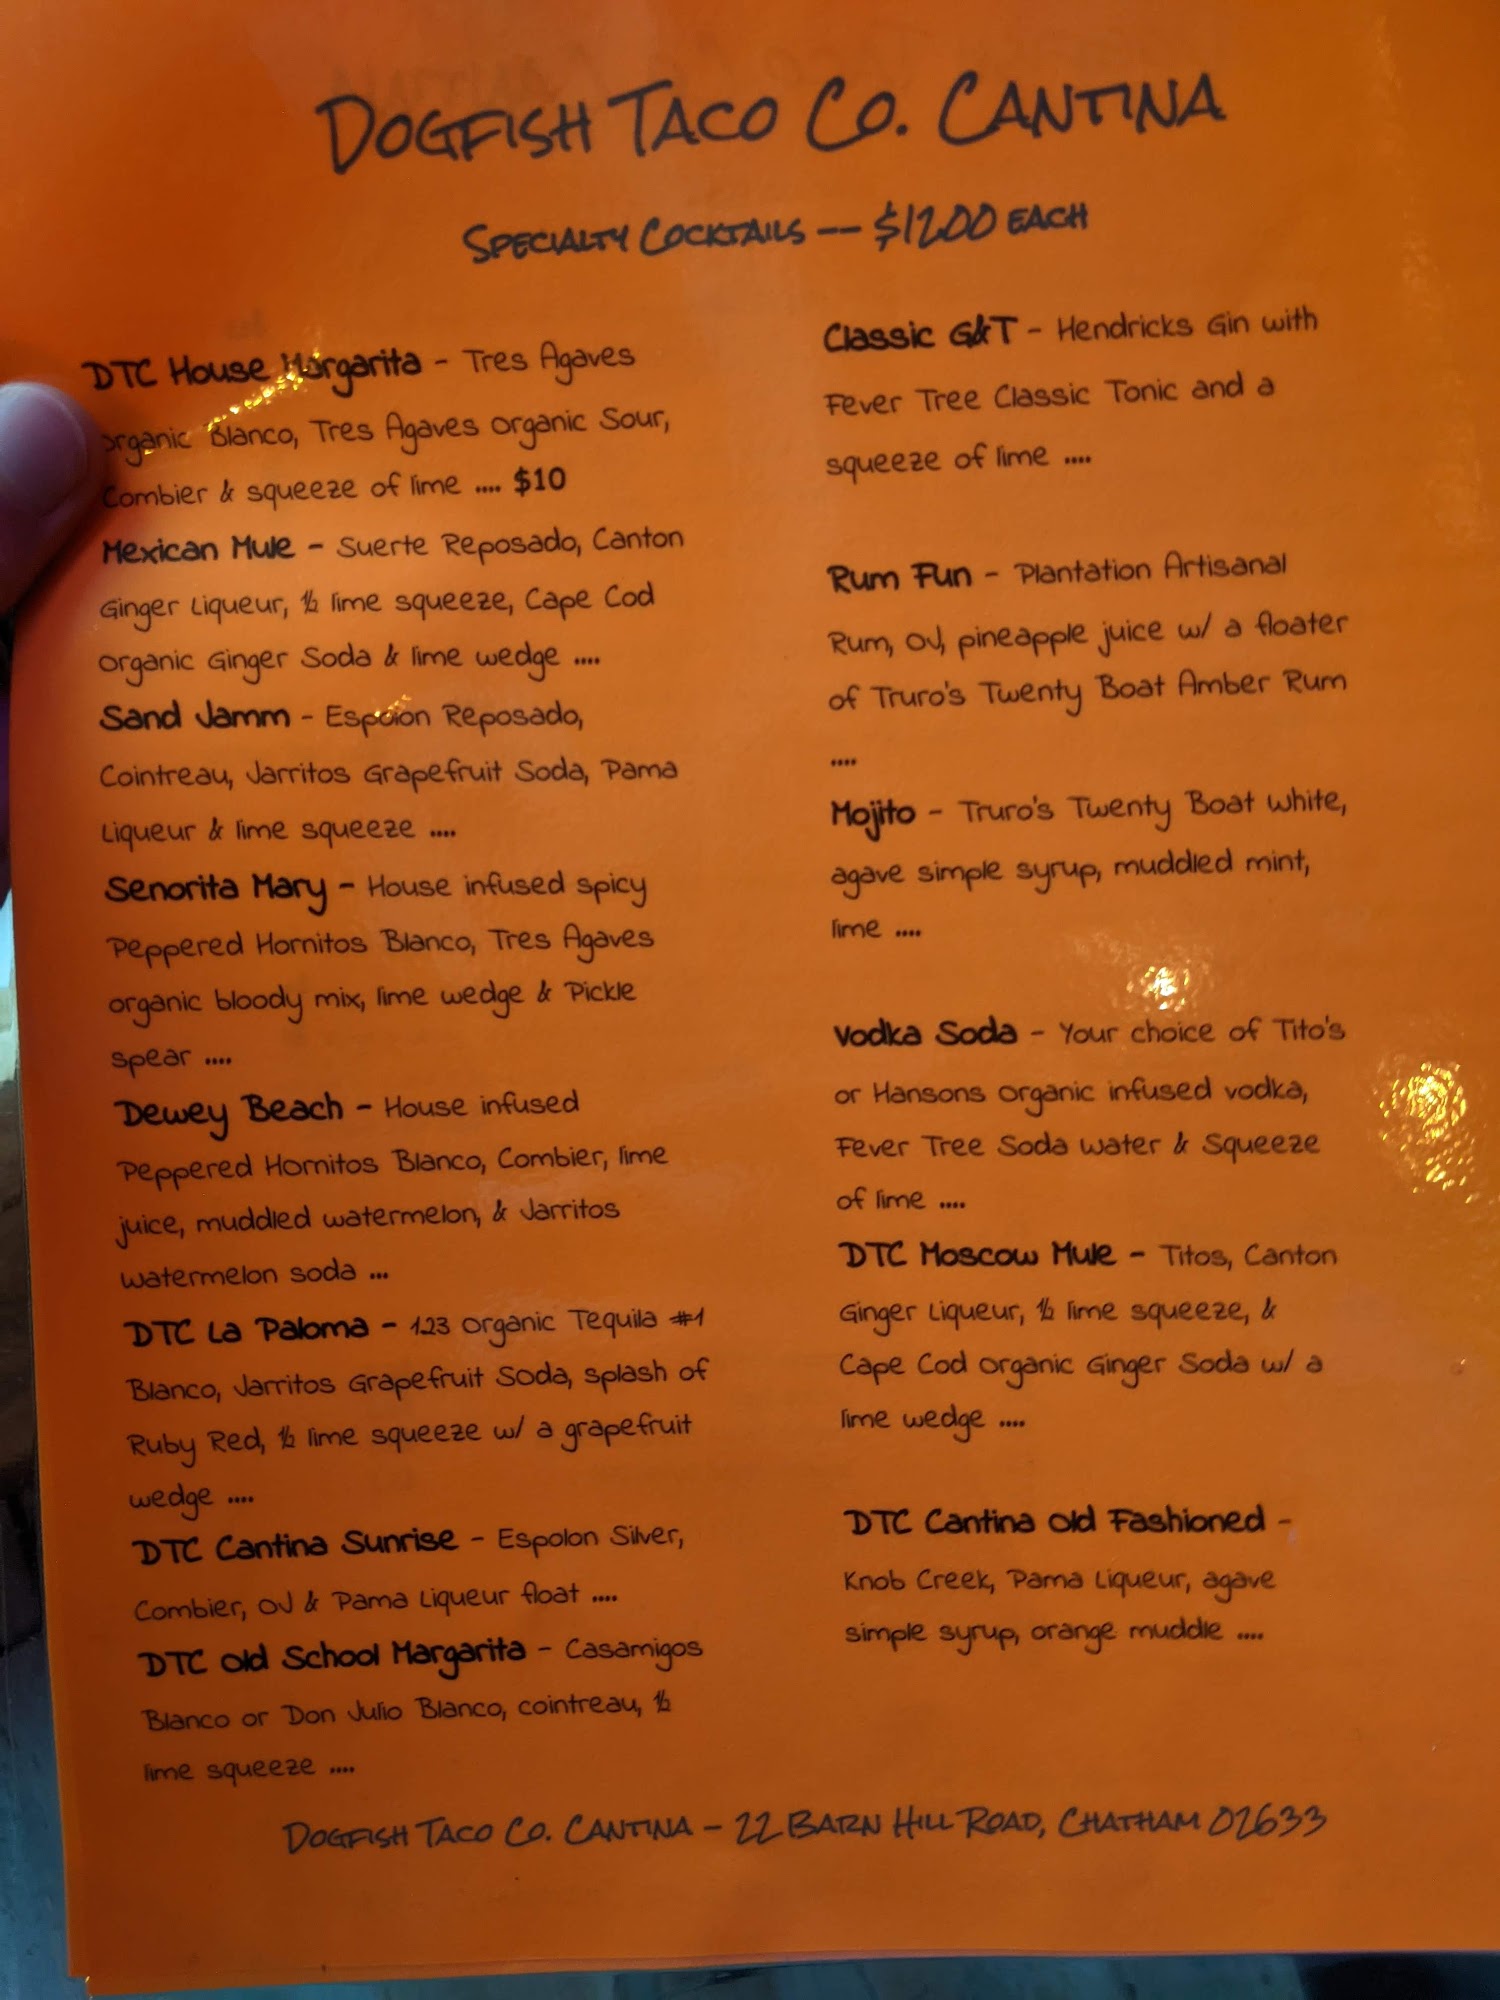 DOGFISH TACO CO. CANTINA
SPECIALTY COCKTAILS -- $1200 EACH
DTC House Margarita - Tres Agaves
organic Blanco, Tres Agaves organic Sour,
Combier & squeeze of lime .... $10
Mexican Mule - Suerte Reposado, Canton
Ginger Liqueur, ½ lime squeeze, Cape Cod
organic Ginger Soda & lime wedge ....
Sand Jamm - Espolon Reposado,
Cointreau, Jarritos Grapefruit Soda, Pama
Liqueur & lime squeeze ....
Senorita Mary - House infused spicy
Peppered Hornitos Blanco, Tres Agaves
organic bloody mix, lime wedge & Pickle
spear ....
Dewey Beach - House infused
Peppered Hornitos Blanco, Combier, lime
juice, muddled watermelon, & Jarritos
watermelon soda ...
DTC La Paloma - 123 organic Tequila #1
Blanco, Jarritos Grapefruit Soda, splash of
Ruby Red, ½ lime squeeze w/ a grapefruit
wedge ....
DTC Cantina Sunrise - Espolon Silver,
Combier, OJ & Pama Liqueur float ....
DTC old School Margarita - Casamigos
Blanco or Don Julio Blanco, cointreau, ½
lime squeeze ....
Classic G&T - Hendricks Gin with
Fever Tree Classic Tonic and a
squeeze of lime ....
Rum Fun - Plantation Artisanal
Rum, OJ, pineapple juice w/ a floater
of Truro's Twenty Boat Amber Rum
....
Mojito - Truro's Twenty Boat white,
agave simple syrup, muddled mint,
lime ....
Vodka Soda - Your choice of Tito's
or Hansons organic infused vodka,
Fever Tree Soda water & Squeeze
of lime ....
DTC Moscow Mule - Titos, Canton
Ginger Liqueur, ½ lime squeeze, &
Cape Cod organic Ginger Soda w/ a
lime wedge ....
DTC Cantina old Fashioned -
Knob Creek, Pama Liqueur, agave
simple syrup, orange muddle ....
DOGFISH TACO CO. CANTINA - 22 BARN HILL ROAD, CHATHAM 02633